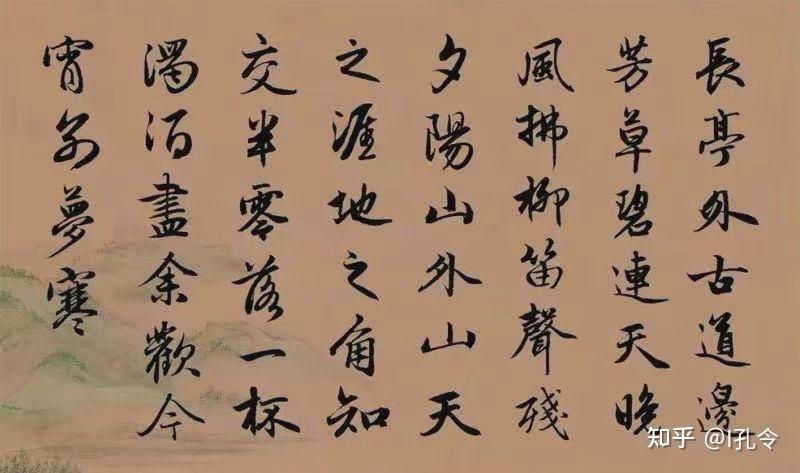 長亭外古道邊
芳草碧連天晚
風拂柳笛聲殘
夕陽山外山天
之涯地之角知
交半零落一杯
濁酒盡余歡今
宵別夢寒
知乎 @I孔令